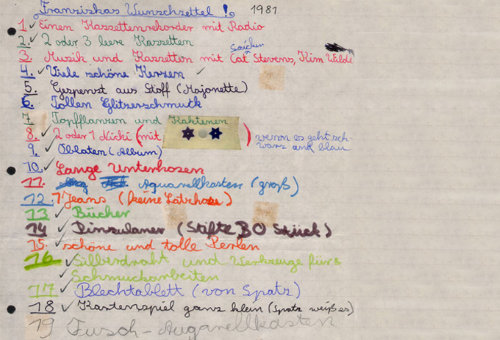 Franziskas Wunschzettel! 1981
1. Einen Kassettenrekorder mit Radio
2. ✓ 2 oder 3 leere Kassetten
Sachen
3. Musik und Kassetten mit Cat Stevens, Kim Wilde
4. ✓ Viele schöne Kerzen ✓
5. Gespenst aus Stoff (Majonette)
6. Tollen Glitzerschmuck
7. Topfpflanzen und Kakteen
8. ✓ 2 oder 1 Nicki (mit ) wenn es geht sch
warz und blau
9. ✓ Oblaten (Album)
10. ✓ Lange Unterhosen
11. Aquarellkasten (groß)
12. ? Jeans (keine Latzhose)
13 ✓ Bücher
14 ✓ (Stifte 30 Stück)
15. ✓ schöne und tolle Perlen
16 ✓ Silberdraht und Werkzeuge fürs
✓ Schmuckarbeiten
17 ✓ Blechtablett (von Spatz)
18 ✓ Kartenspiel ganz klein (Spatz weiß es)
19 Aquarellkasten